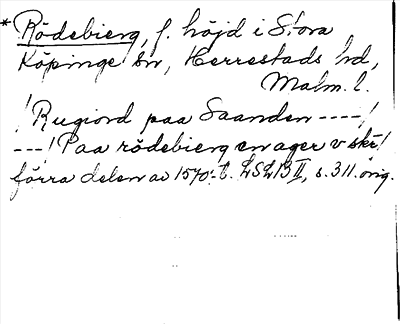 * Rödebierg, f. höjd i Stora
Köpinge sn, Herrestads hd,
Malm. l.
! Rugiord paa Saanden ----!
---! Paa rödebierg en ager v skr!
förra delen av 1570-t. LSLB II, s. 311. orig.